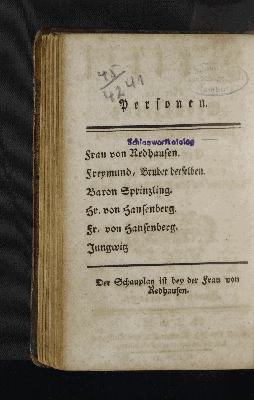 45
4241
Personen.
Schlagwortkatalog
Frau von Redhausen.
Freymund, Bruder derselben.
Baron Sprinzling.
Hr. von Hansenberg.
Fr. von Hansenberg.
Jungwitz
Der Schauplatz ist bey der Frau von
Redhausen.